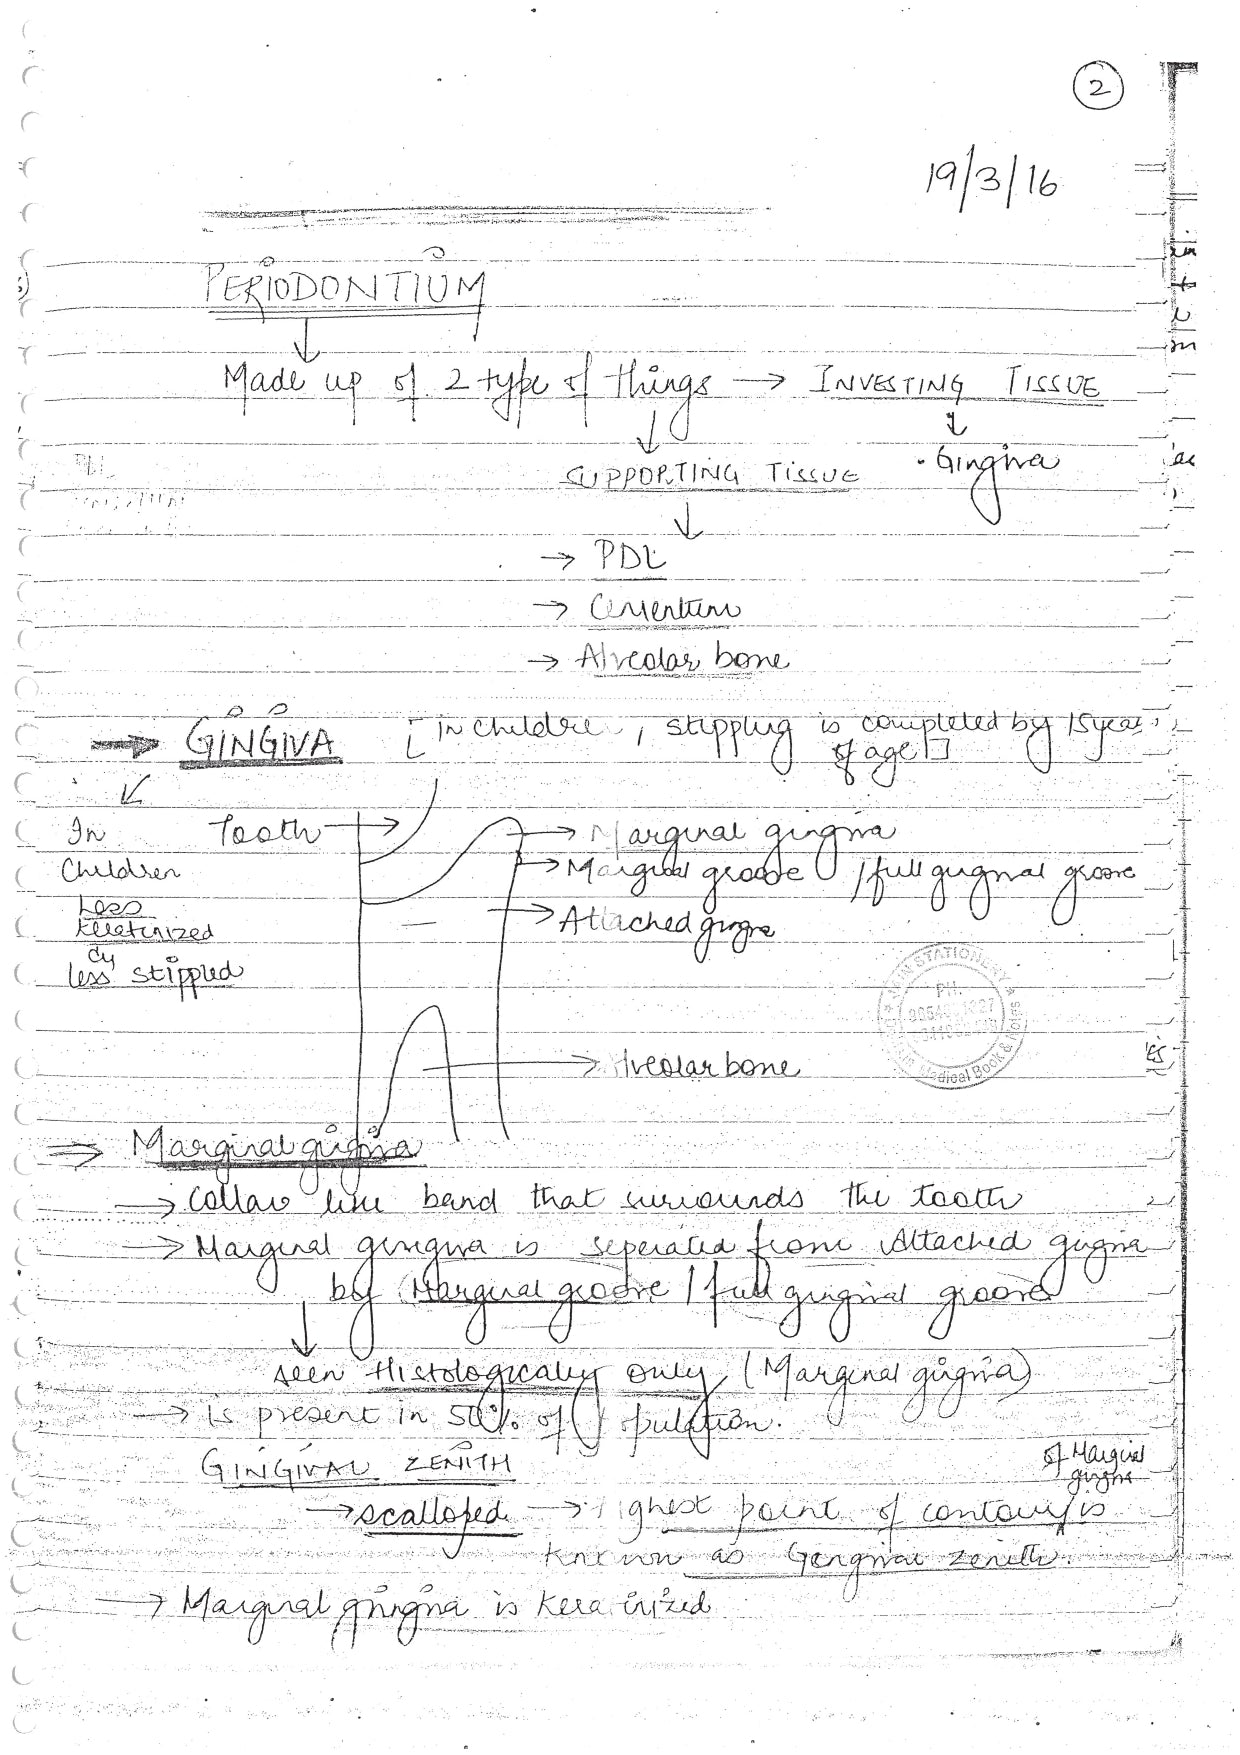 2
19/3/16
PERIODONTIUM
Made up of 2 type of things → INVESTING TISSUE
SUPPORTING TISSUE · Gingiva
→ PDL
→ Cementum
→ Alveolar bone
→ GINGIVA [in children, stippling is completed by 15 years
of age]
In Tooth → Marginal gingiva
Children → Marginal groove / full gingival groove
Less → Attached gingiva
keratinized
less stippled
STATIONERY
PH.
Medical Book & Notes
→ Alveolar bone
⇒ Marginal gingiva
→ Collar like band that surrounds the tooth
→ Marginal gingiva is seperated from Attached gingiva
by (Marginal groove / full gingival groove)
seen Histologically only (Marginal gingiva)
→ is present in 50% of population.
GINGIVAL ZENITH
of Marginal
gingiva
→ scalloped → Highest point of contour is
known as Gingival zenith.
→ Marginal gingiva is keratinized